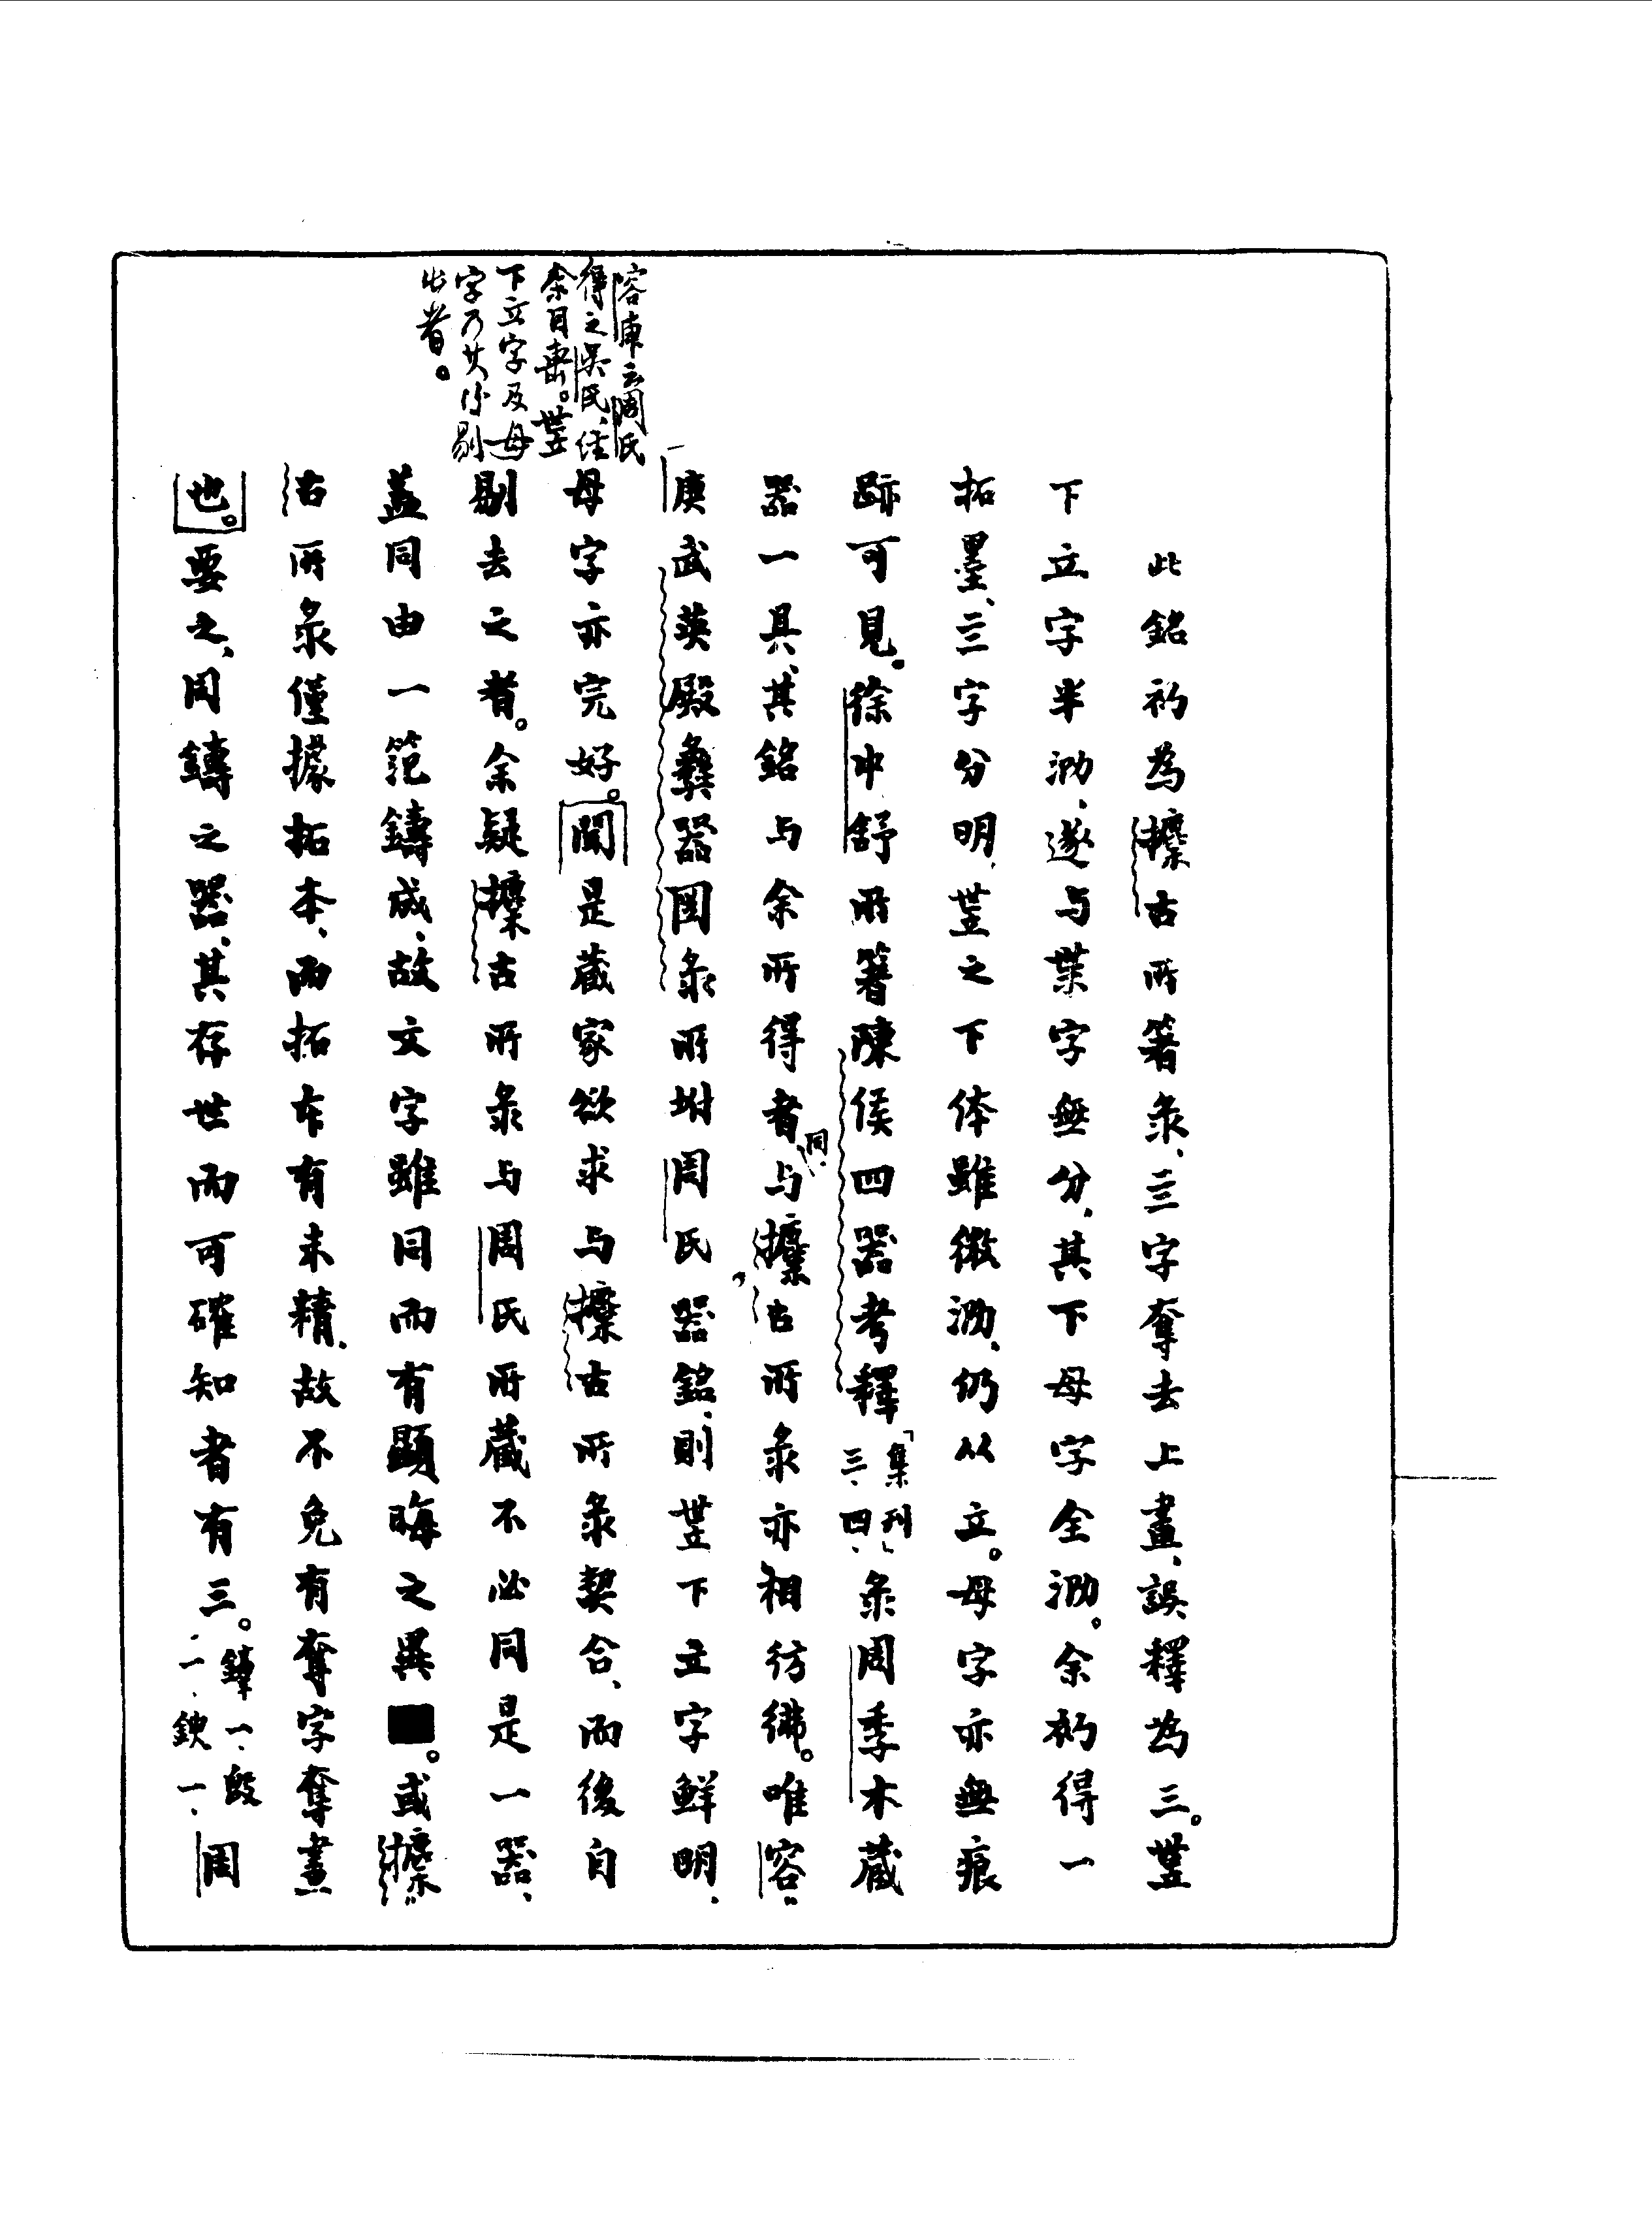 此銘初為攈古所箸彔、亖字奪去上畫、誤釋為三。𠀍
下立字半泐、遂与枼字無分、其下母字全泐。余初得一
拓墨、亖字分明、𠀍之下体雖微泐、仍从立。母字亦無痕
跡可見。徐中舒所箸陳侯四器考釋「集刊」三、四、彔周季木藏
器一具、其銘与余所得者同、与攈古所彔亦相彷彿。唯容
庚武英殿彝器圖彔所坿周氏器銘、則𠀍下立字鮮明、
母字亦完好。聞是藏家欲求与攈古所彔契合、而後自
剔去之者。余疑攈古所彔与周氏所藏不必同是一器、
蓋同由一范鑄成、故文字雖同而有顯晦之異。或攈
古所彔僅據拓本、而拓本有未精、故不免有奪字奪畫
也。要之、同鑄之器、其存世而可確知者有三。鐘一、𣪘一、鍥一、周
容庚云周氏
得之吳氏、往
余目棗。𠀍
下立字及母
字乃其後剔
出者。